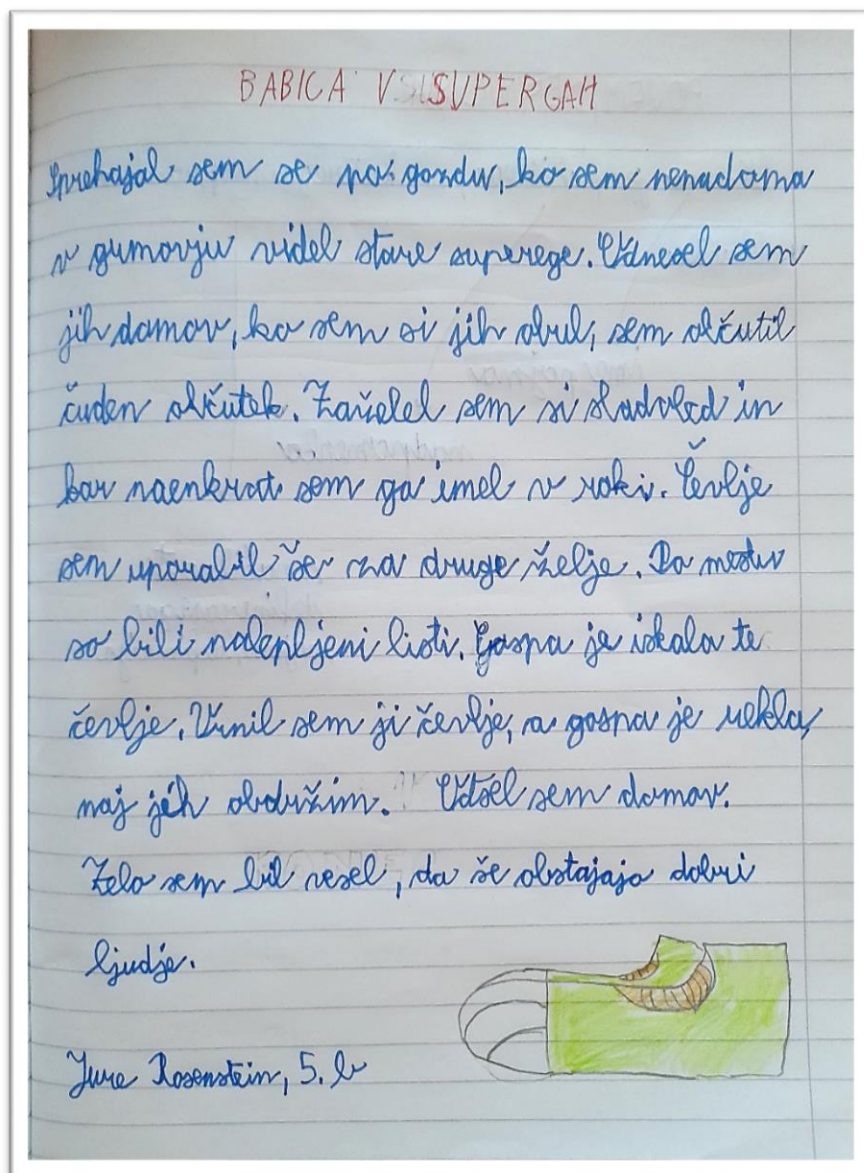 BABICA V SUPERGAH
Sprehajal sem se po gozdu, ko sem nenadoma
v grmovju videl stare superge. Odnesel sem
jih domov, ko sem si jih obul, sem občutil
čuden občutek. Zaželel sem si sladoled in
kar naenkrat sem ga imel v roki. Čevlje
sem uporabil še za druge želje. Po mestu
so bili nalepljeni listi. Gospa je iskala te
čevlje. Vrnil sem ji čevlje, a gospa je rekla,
naj jih obdržim. Odšel sem domov.
Zelo sem bil vesel, da še obstajajo dobri
ljudje.
Jure Rosenstein, 5. b